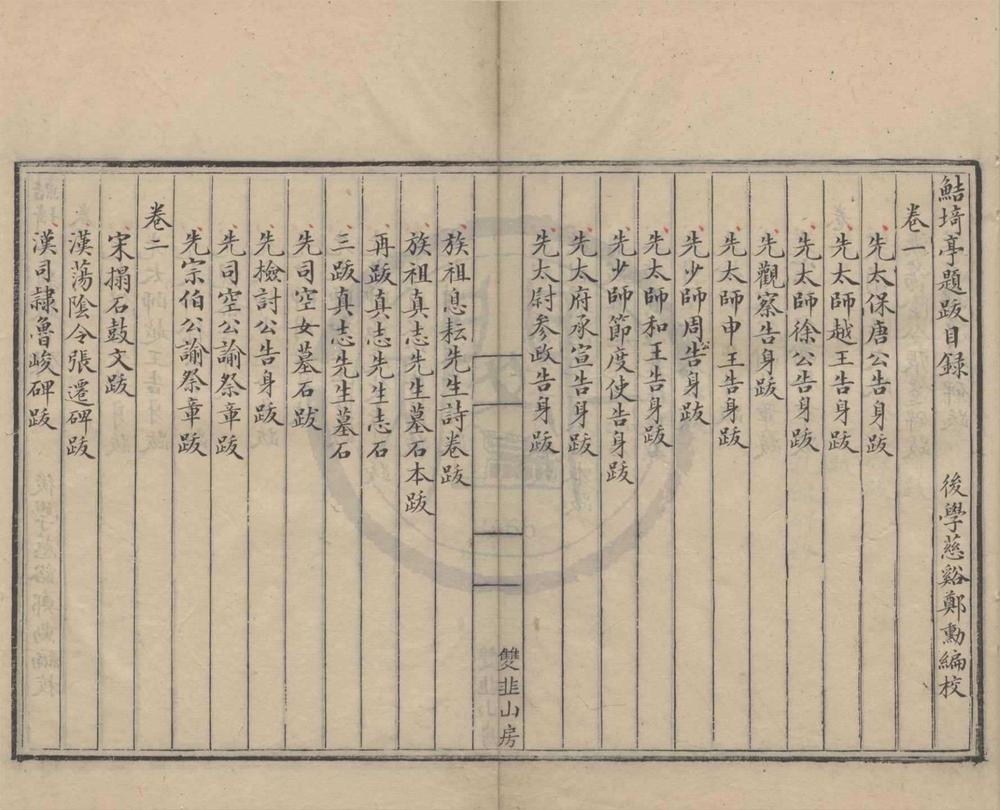 鮚埼亭題跋目録 後學慈谿鄭勳編校
卷一
先太保唐公告身跋
先太師越王告身跋
先太師徐公告身跋
先觀察告身跋
先太師申王告身跋
先少師周告身跋
先太師和王告身跋
先少師節度使告身跋
先太府承宣告身跋
先太尉參政告身跋
雙韭山房
族祖息耘先生詩卷跋
族祖真志先生墓石本跋
再跋真志先生志石
三跋真志先生墓石
先司空女墓石跋
先檢討公告身跋
先司空公諭祭章跋
先宗伯公諭祭章跋
卷二
宋搨石鼓文跋
漢蕩陰令張遷碑跋
漢司隸魯峻碑跋